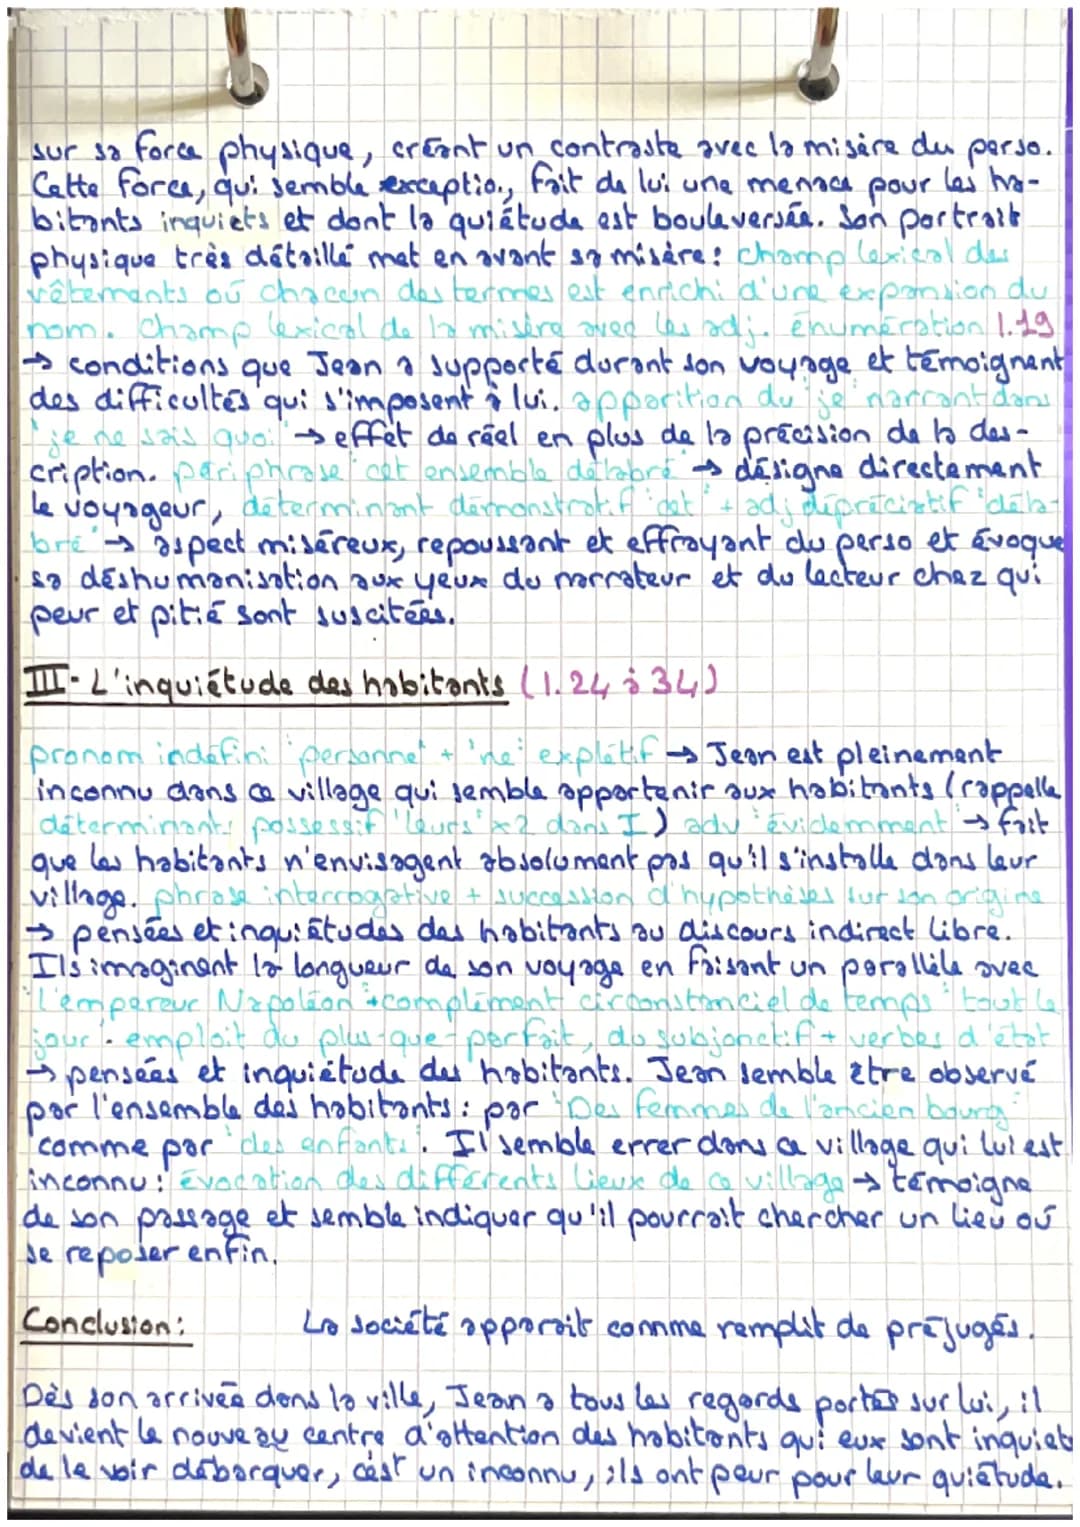 sur sa force physique, créant un contraste avec la misère du perso.
Cette force, qui semble exceptio., fait de lui une menace pour les ha-
bitants inquiets et dont la quiétude est bouleversée. Son portrait
physique très détaillé met en avant sa misère : champ lexical des
vêtements où chacun des termes est enrichi d'une expansion du
nom. Champ lexical de la misère avec les adj. énumération l.19
→ conditions que Jean a supporté durant son voyage et témoignent
des difficultés qui s'imposent à lui. apparition du "je" narrant dans
"je ne sais quoi" → effet de réel en plus de la précision de la des-
cription. périphrase "cet ensemble délabré" → désigne directement
le voyageur, déterminant démonstratif "cet" + adj dépréciatif "déla-
bré" → aspect miséreux, repoussant et effrayant du perso et évoque
sa déshumanisation aux yeux du narrateur et du lecteur chez qui
peur et pitié sont suscitées.
III- L'inquiétude des habitants (l.24 à 34)
pronom indéfini "personne" + "ne" explétif → Jean est pleinement
inconnu dans ce village qui semble appartenir aux habitants (rappelle
déterminants possessif "leurs" x2 dans I) adv "évidemment" → fait
que les habitants n'envisagent absolument pas qu'il s'installe dans leur
village. phrase interrogative + succession d'hypothèses sur son origine
→ pensées et inquiétudes des habitants au discours indirect libre.
Ils imaginent la longueur de son voyage en faisant un parallèle avec
"l'empereur Napoléon" + complément circonstanciel de temps "tout le
jour". emploit du plus-que-parfait, du subjonctif + verbes d'état
→ pensées et inquiétude des habitants. Jean semble être observé
par l'ensemble des habitants : par "Des femmes de l'ancien bourg"
comme par "des enfants". Il semble errer dans ce village qui lui est
inconnu : évocation des différents lieux de ce village → témoigne
de son passage et semble indiquer qu'il pourrait chercher un lieu où
se reposer enfin.
Conclusion : La société apparait comme remplit de préjugés.
Dès son arrivée dans la ville, Jean a tous les regards portés sur lui, il
devient le nouveau centre d'attention des habitants qui eux sont inquiets
de le voir débarquer, c'est un inconnu, ils ont peur pour leur quiétude.